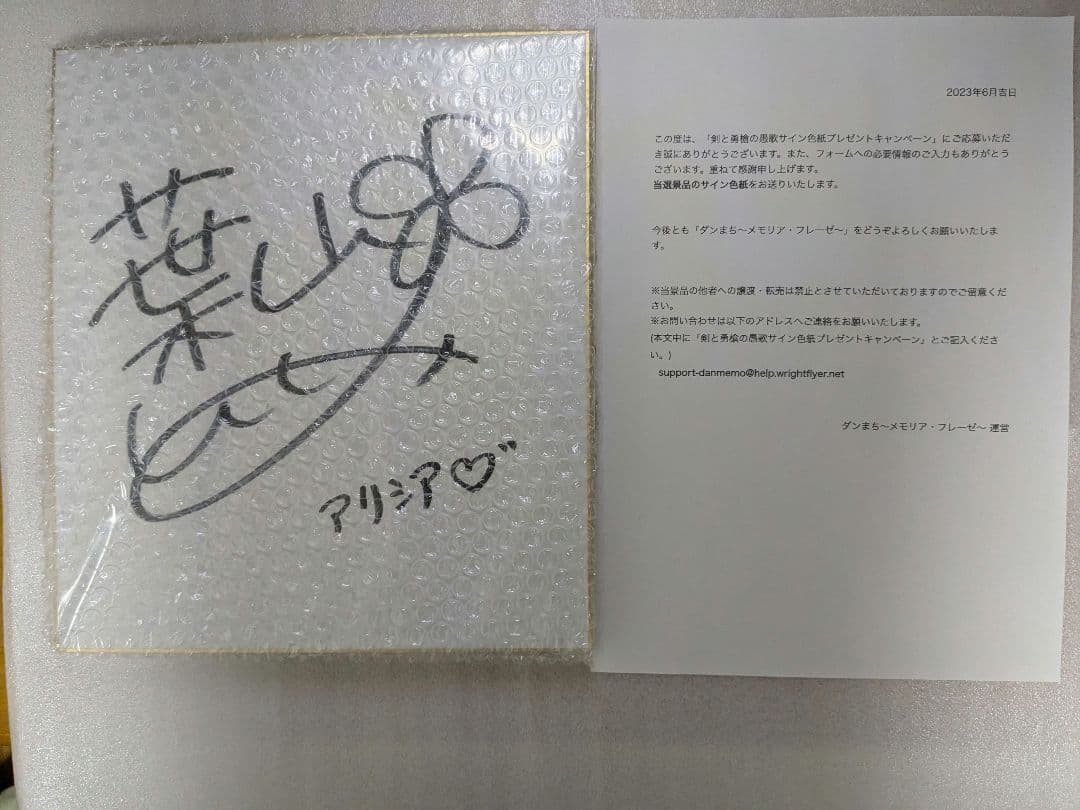 葉山
アリシア♡
2023年6月吉日
この度は、「剣と勇槍の愚歌サイン色紙プレゼントキャンペーン」にご応募いただ
き誠にありがとうございます。また、フォームへの必要情報のご入力もありがとう
ございます。重ねて感謝申し上げます。
当選景品のサイン色紙をお送りいたします。
今後とも「ダンまち～メモリア・フレーゼ～」をどうぞよろしくお願いいたしま
す。
※当景品の他者への譲渡・転売は禁止とさせていただいておりますのでご留意くだ
さい。
※お問い合わせは以下のアドレスへご連絡をお願いいたします。
(本文中に「剣と勇槍の愚歌サイン色紙プレゼントキャンペーン」とご記入くださ
い。)
support-danmemo@help.wrightflyer.net
ダンまち～メモリア・フレーゼ～ 運営